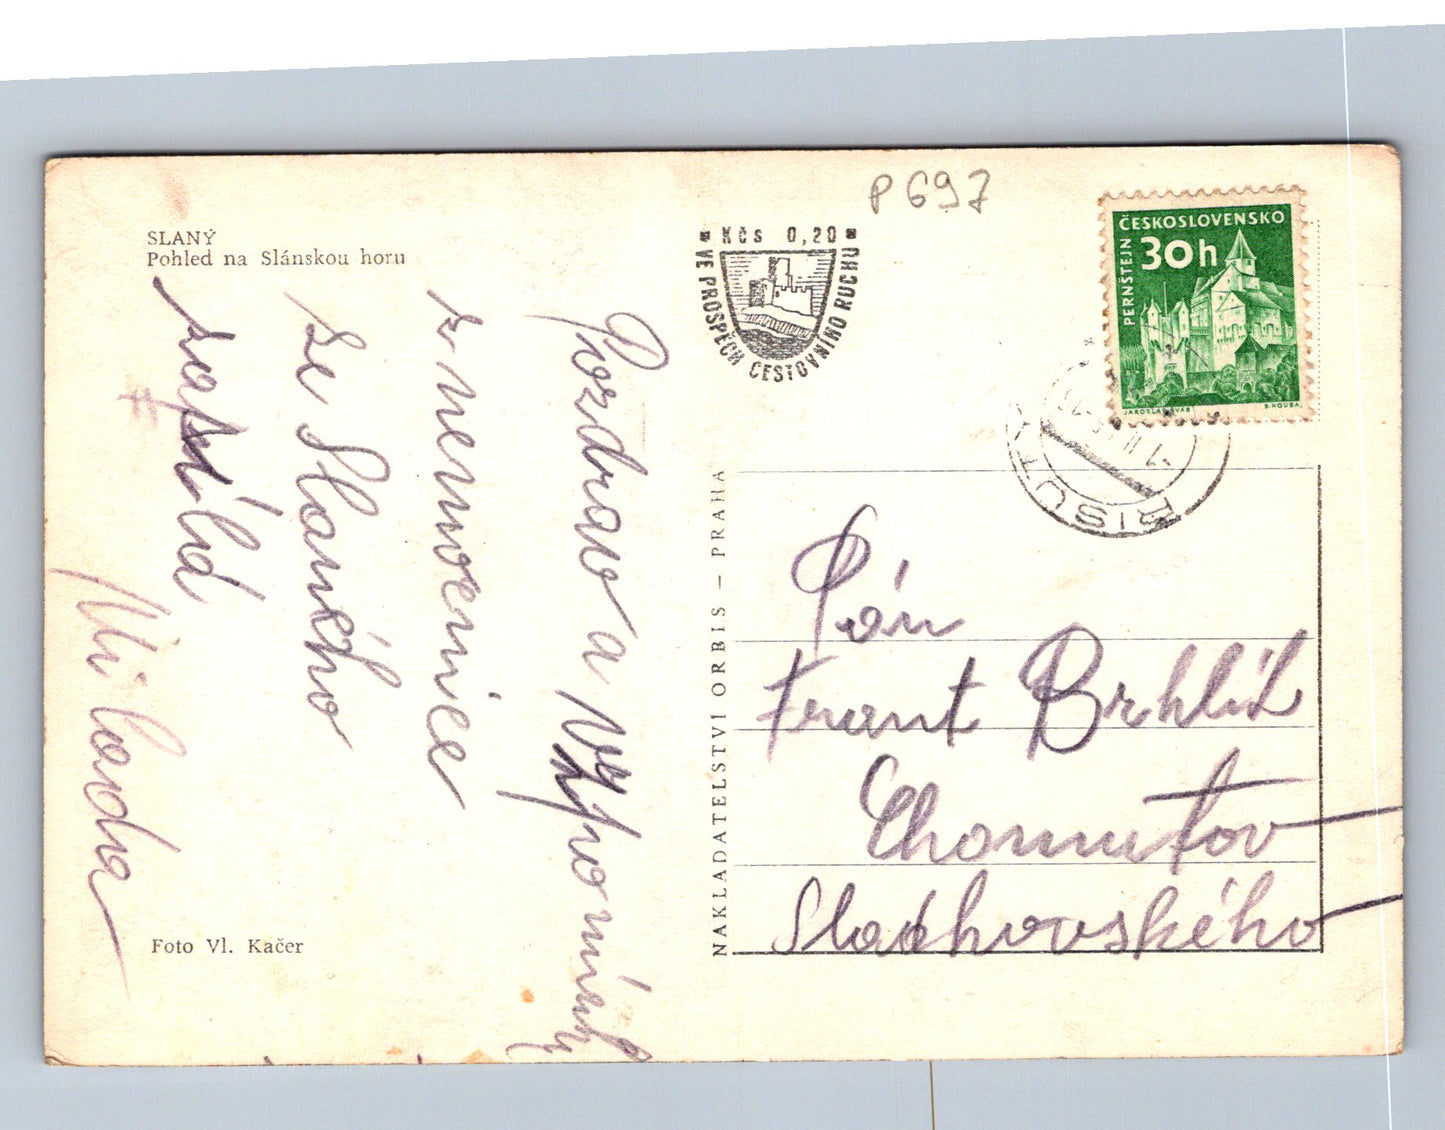 P 697
SLANÝ
Pohled na Slánskou horu
Kčs 0,20
VE PROSPĚCH CESTOVNÍHO RUCHU
ČESKOSLOVENSKO
30h
PERNŠTEJN
JAROSLAV ŠVÁB
B. HOUSA
ŘISUTY
Pozdrav a Vzpomínk
z nemocnice
ze Slaného
zasílá
Milada
Foto Vl. Kačer
NAKLADATELSTVÍ ORBIS – PRAHA
Pán
Frant Brhlík
Chomutov
Slachovského